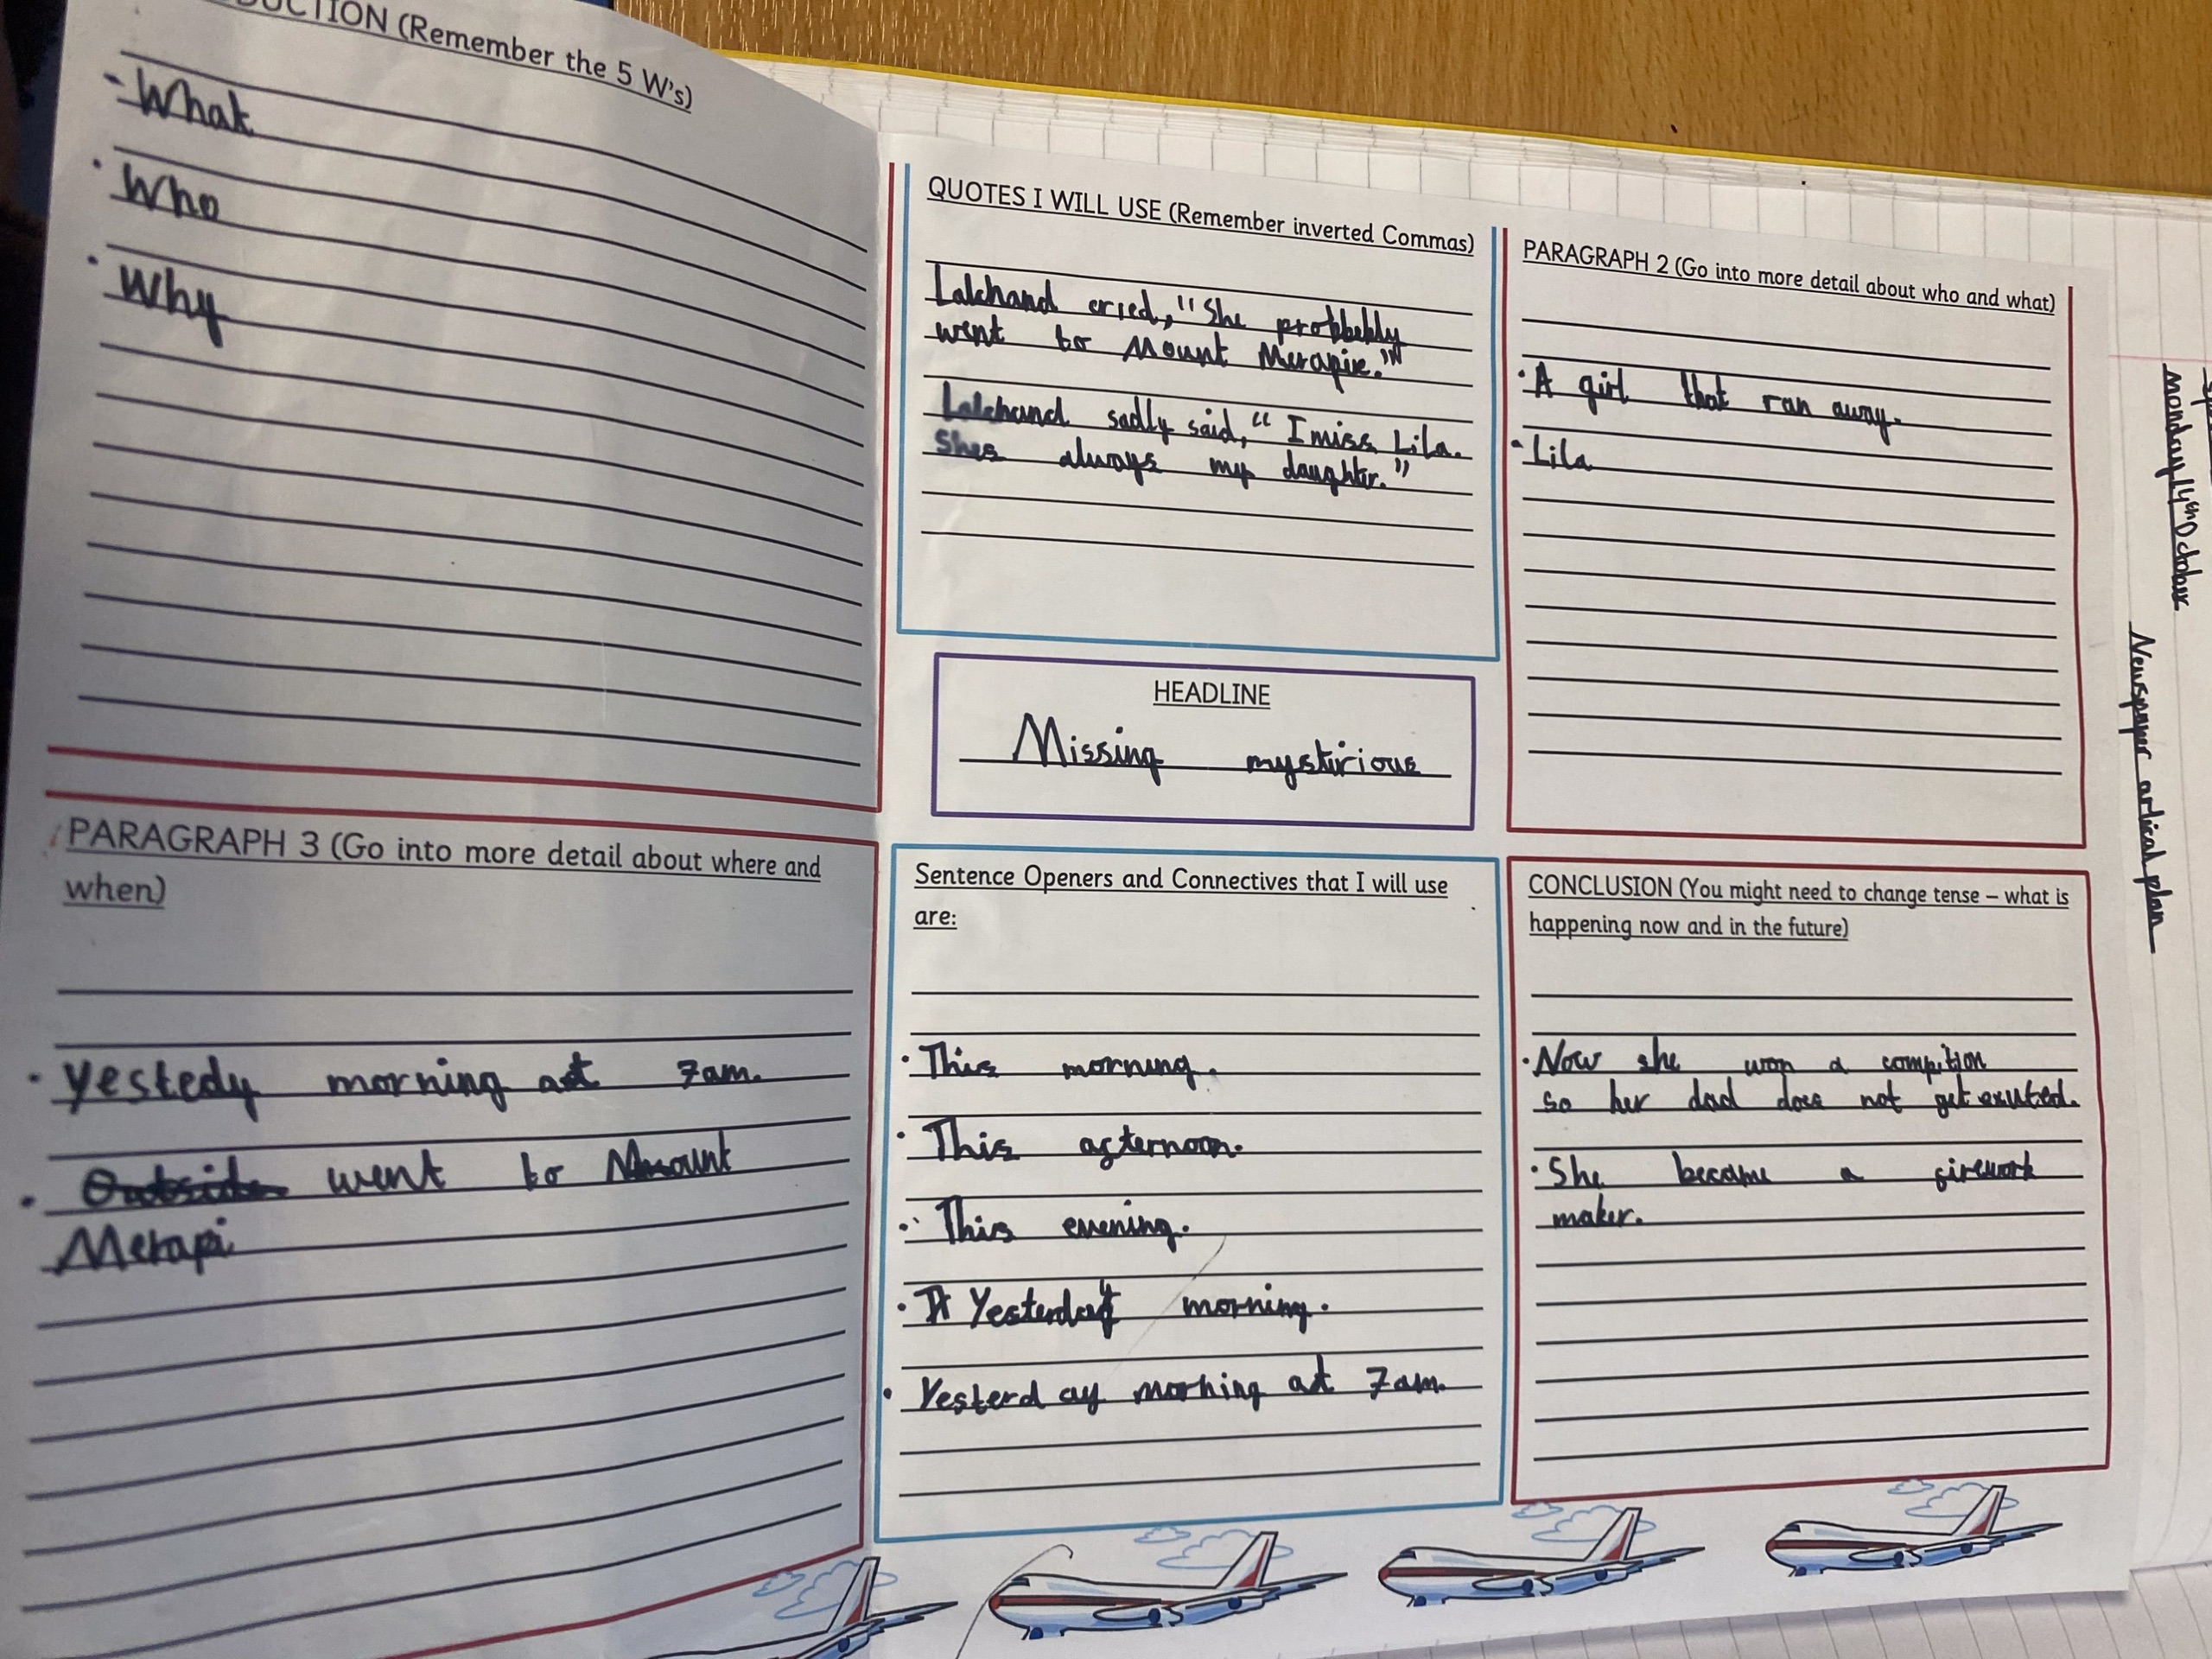 (Remember the 5 W's)
- What
· Who
· Why
QUOTES I WILL USE (Remember inverted Commas)
Lalchand cried, "She probbebly
went to Mount Merapie."
Lalchand sadly said, "I miss Lila.
Shes always my daughter."
HEADLINE
Missing mystirious
PARAGRAPH 2 (Go into more detail about who and what)
· A girl that ran away.
· Lila
PARAGRAPH 3 (Go into more detail about where and
when)
· Yestedy morning at 7am.
· went to Mount
Merapi
Sentence Openers and Connectives that I will use
are:
· This morning.
· This afternoon.
· This evening.
· Yesterday morning.
· Yesterday morning at 7am.
CONCLUSION (You might need to change tense – what is
happening now and in the future)
· Now she won a compition
so her dad does not get exuted.
· She became a firework
maker.
Monday 14th October
Newspaper artical plan